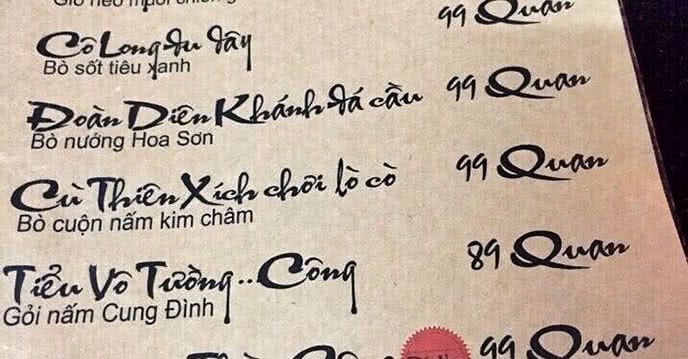 99 Quan
Cô Long đu dây 99 Quan
Bò sốt tiêu xanh
Đoàn Diên Khánh đá cầu 99 Quan
Bò nướng Hoa Sơn
Cù Thiên Xích chơi lò cò 99 Quan
Bò cuộn nấm kim châm
Tiểu Vô Tường..Công 89 Quan
Gỏi nấm Cung Đình
99 Quan